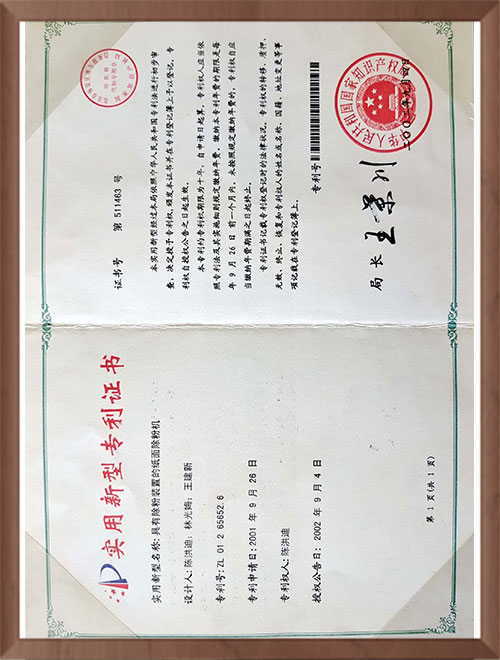 实用新型专利证书
实用新型名称: 具有除粉装置的纸面除粉机
设计人: 陈洪迪; 林光姆; 王建新
专利号: ZL 01 2 65652. 6
专利申请日: 2001 年 9 月 26 日
专利权人: 陈洪迪
授权公告日: 2002 年 9 月 4 日
第 1 页(共 1 页)
证书号 第 511463 号
本实用新型经过本局依照中华人民共和国专利法进行初步审
查，决定授予专利权，颁发本证书并在专利登记簿上予以登记。专
利权自授权公告之日起生效。
本专利的专利权期限为十年，自申请日起算。专利权人应当依
照专利法及其实施细则规定缴纳年费。缴纳本专利年费的期限是每
年 9 月 26 日 前一个月内。未按照规定缴纳年费的，专利权自应
当缴纳年费期满之日起终止。
专利证书记载专利权登记时的法律状况。专利权的转移、质押、
无效、终止、恢复和专利权人的姓名或名称、国籍、地址变更等事
项记载在专利登记簿上。
专利号
局长 王景川
中华人民共和国国家知识产权局